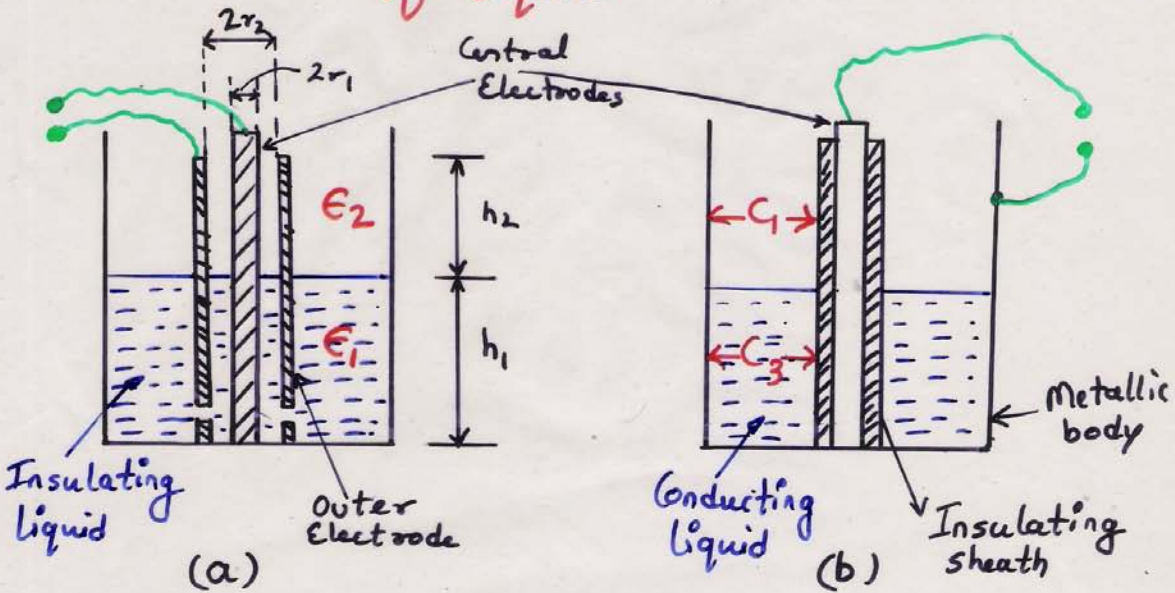 2r₂
2r₁
Central
Electrodes
ϵ₂
h₂
ϵ₁
h₁
Insulating
liquid
Outer
Electrode
(a)
C₁
C₃
Metallic
body
Conducting
liquid
Insulating
Sheath
(b)